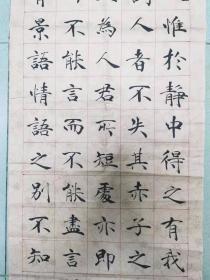 惟於靜中得之有我
人者不失其赤子之
為人君所短處亦即
不能言而不能盡言
景語情語之別不知